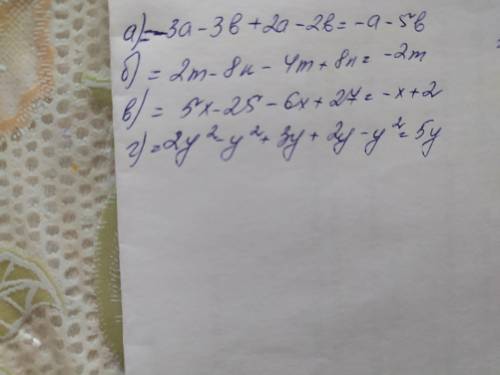 а) = -3а - 3в + 2а - 2в = -а - 5в
б) = 2m - 8n - 4m + 8n = -2m
в) = 5x - 25 - 6x + 27 = -x + 2
г) = 2y² - y² + 3y + 2y - y² = 5y